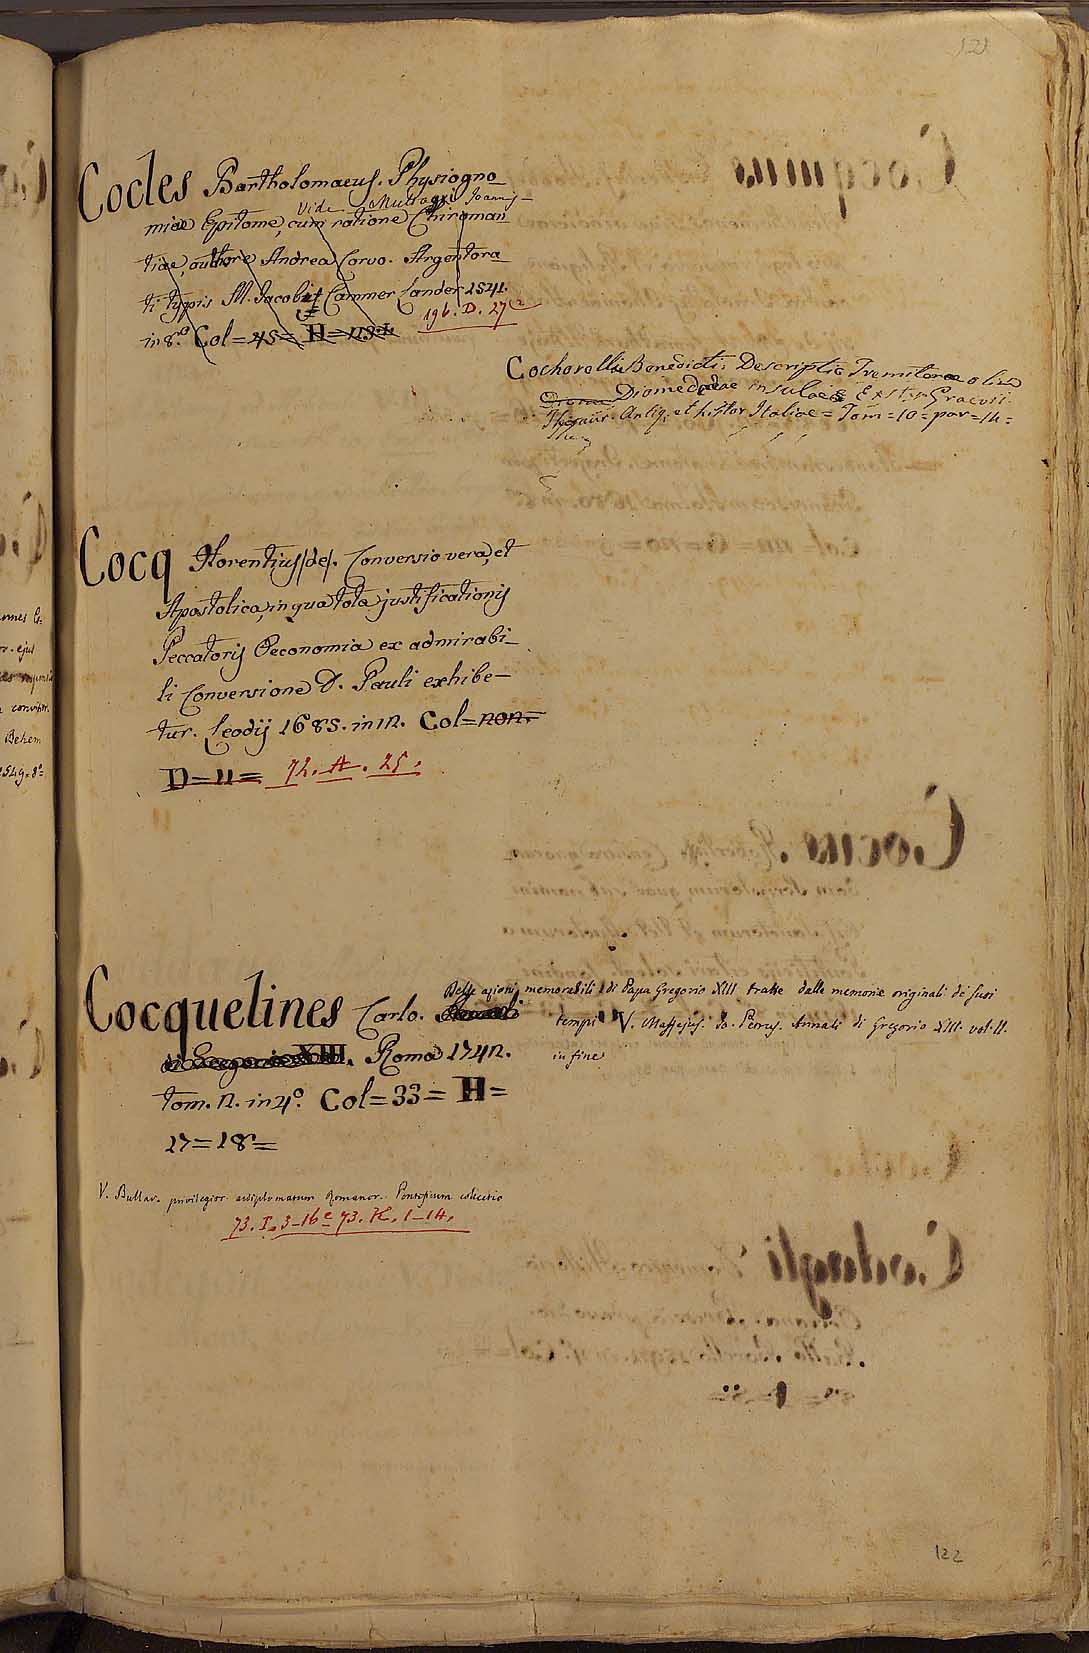 121
Cocles Bartholomaeus. Physiogno_
Vide Joannis_
miae Epitome, cum ratione Chiroman_
tiae, authore Andrea Corvo. Argentora_
ti typis M. Jacobi Cammer Lander 1541.
in 8.º Col=45= H=
196. D. 27
Cochorella Benedicti. Descriptio Tremitanae olim
Diomedeae insulae Exst. in Graevii
Thesaur. Antiq. et histor Italiae= Tom=10= par=14=
Cocq Florentius /de/. Conversio vera, et
Apostolica, in qua tota justificationis
Peccatoris Oeconomia ex admirabi_
li Conversione D. Pauli exhibe_
tur. Leodij 1685. in 12. Col=
D=11= 72. A. 25.
Cocquelines Carlo.
Delle azioni memorabili di Papa Gregorio XIII tratte dalle memorie originali de' suoi
tempi V. Maffejus. Jo. Petrus. Annali di Gregorio XIII. vol. II.
in fine
di Gregorio XIII. Roma 1742.
tom. 2. in 4º. Col=33= H=
17=18=
V. Bullar. privilegior. ac diplomatum Romanor. Pontificum collectio
73. I. 3_16 e 73. K. 1_14.
122
ejus
Behem